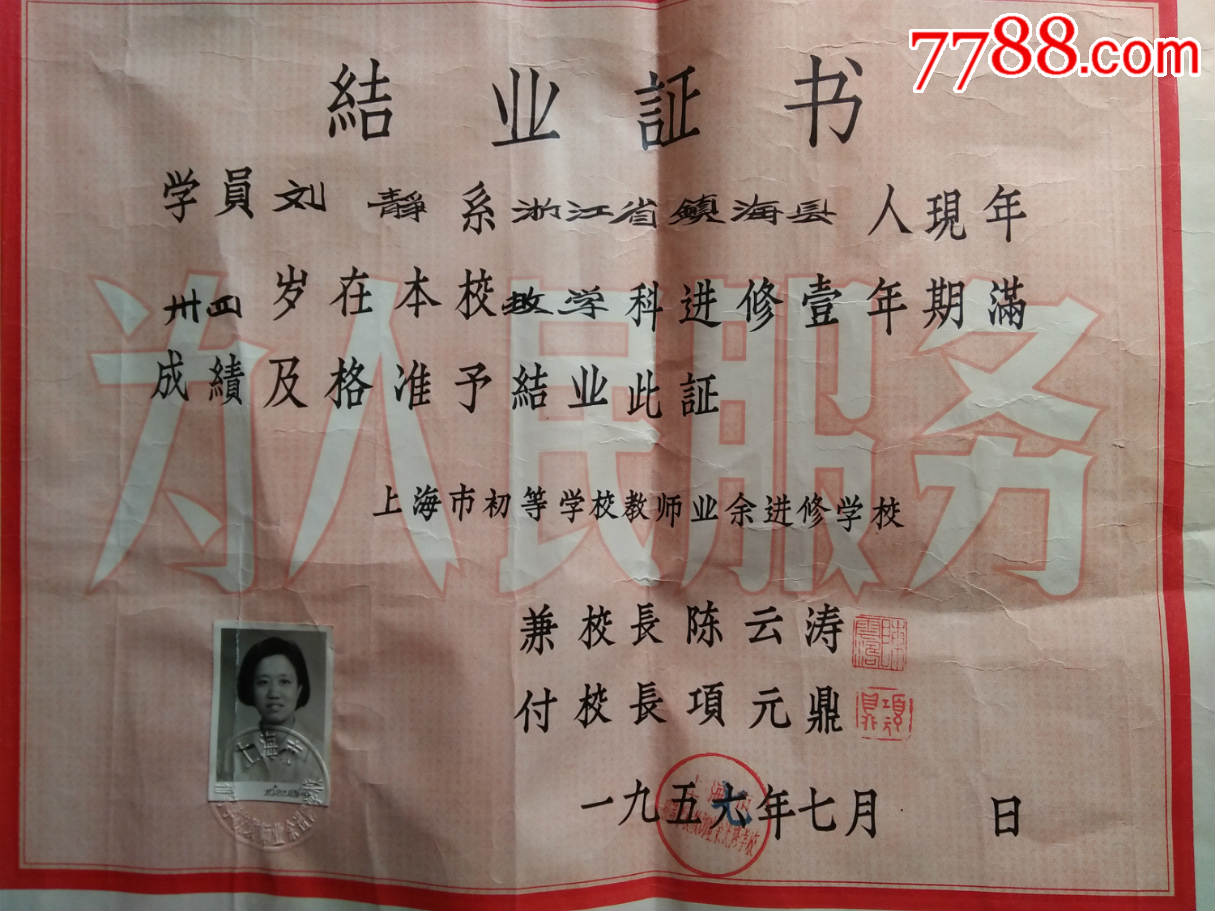 7788.com
結业証书
学員刘靜系浙江省鎮海县人現年
卅四岁在本校教学科进修壹年期滿
成績及格准予結业此証
为人民服务
上海市初等学校教师业余进修学校
兼校長陈云涛
付校長項元鼎
一九五六年七月 日
上海市